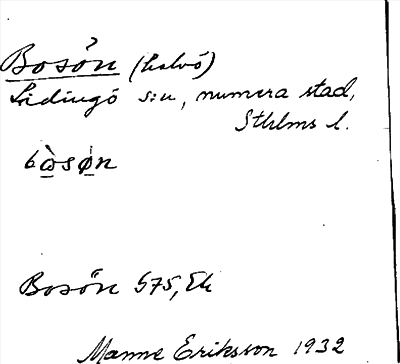 Bosön (halvö)
Lidingö s:n, numera stad,
Sthlms l.
bὼ̲sø̲n
Bosön 575, Ek
Manne Eriksson 1932